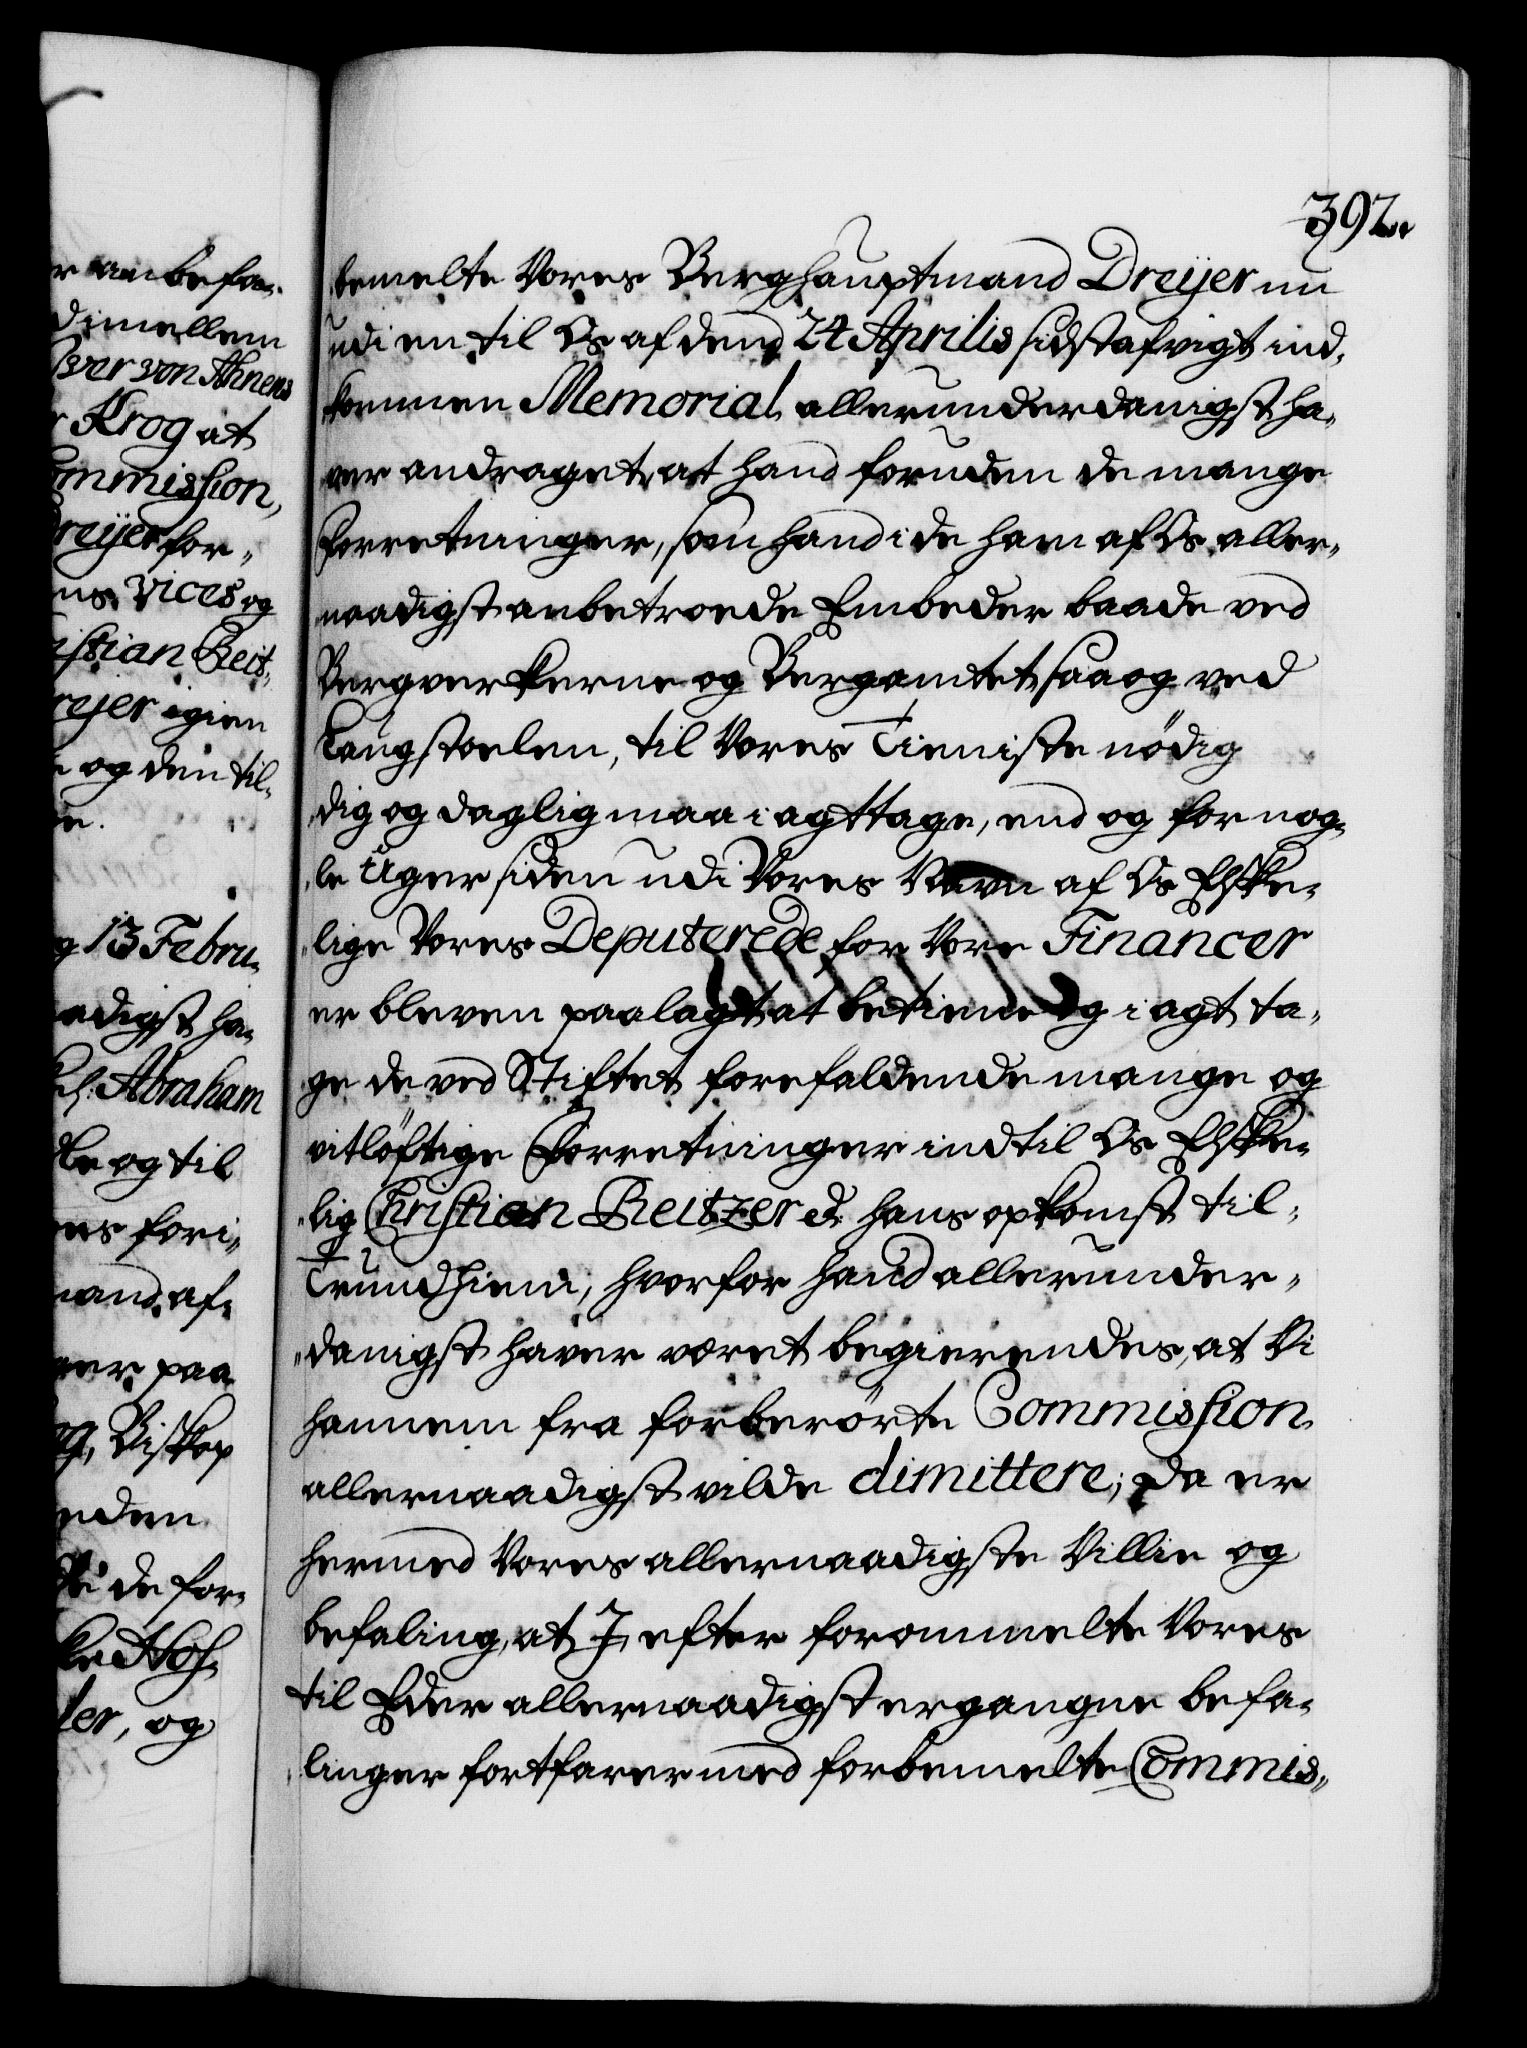 392.
bemelte Vores Berghauptmand Dreÿer nu
udi en til Os af dend 24 Aprilis sidst afvigt ind-
kommen Memorial allerunderdanigst ha-
ver andraget, at hand foruden de mange
Forretninger, som hand i de ham af Os aller-
naadigst anbetroede Embeder baade ved
Bergverkerne og Bergamtet, saa og ved
Laugstoelen, til Vores Tieniste nödig
dig og daglig maa i agttage, end og for nog-
le Uger siden udi Vores Navn af Os Elske-
lige Vores Deputerede for Vore Financer
er bleven paalagt at betiene og i agt ta-
ge de ved Stiftet forefaldende mange og
vitlöftige Forretninger indtil Os Elske-
lig Christian Reitzer d. hans opkomst til
Trundhiem, hvorfor hand allerunder-
danigst haver været begierendes, at Vi
hannem fra forberörte Commission
allernaadigst vilde dimittere; Da er
hermed Vores allernaadigste Villie og
befaling, at I, efter forommelte Vores
til Eder allernaadigst ergangne befa-
linger fortfarer med forbemelte Commis-
r anbefa-
dimellem
ver von Ahnens
r Krog at
ommission,
Dreÿer for-
ns vices og
istian Reit-
rejer igien
e og den til-
e.
g 13 Febru-
adigst ha-
Abraham
le og til
ns fori-
mand af-
ver paa
og, Biskop
eden
Vi de for-
ler, og